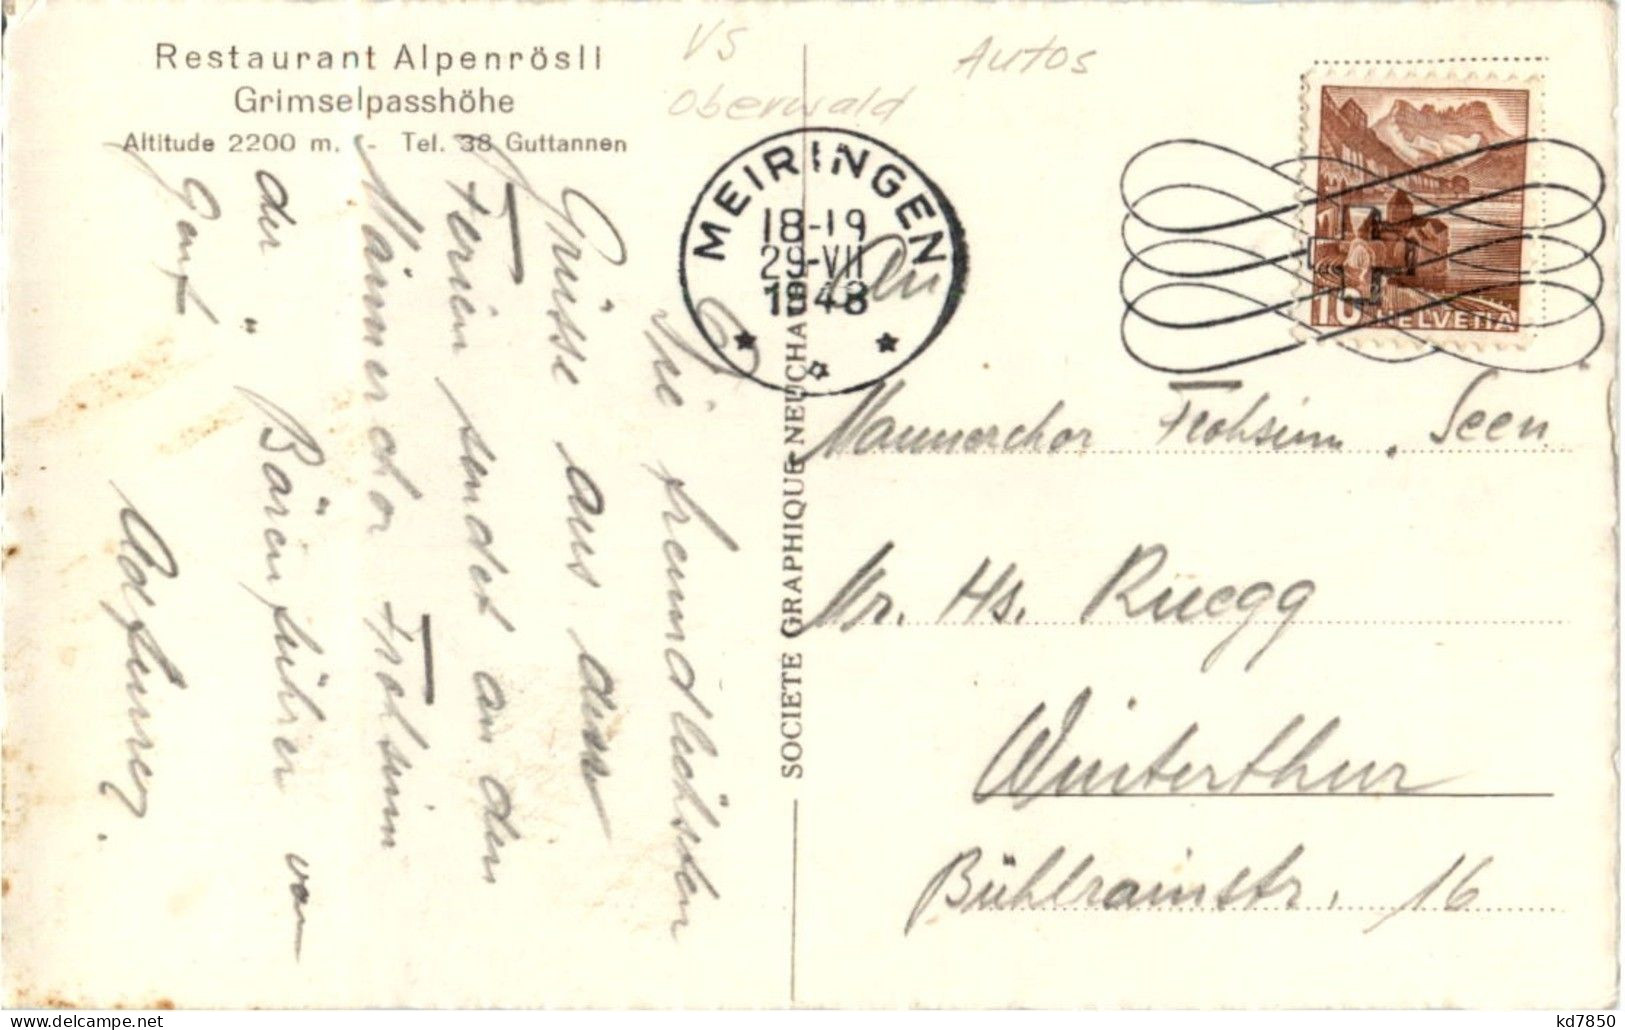 Restaurant Alpenrösli
Grimselpasshöhe
Altitude 2200 m. - Tel. 38 Guttannen
VS
Oberwald
Autos
MEIRINGEN
18-19
29-VII
1948
10
HELVETIA
SOCIETE GRAPHIQUE NEUCHA
Die freundlichsten
Grüsse aus den
Ferien sendet an den
Männerchor Frohsinn
der " Bärenführer von
Genf
An
Männerchor Frohsinn, Seen
Hr. Hs. Rüegg
Winterthur
Bühlrainstr. 16
kd7850